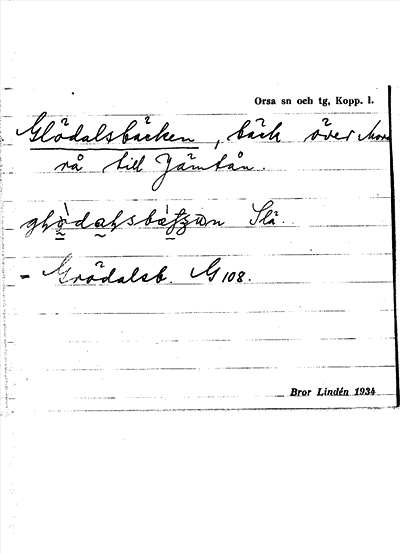 Orsa sn och tg, Kopp. l.
Glödalsbäcken, bäck över Mora
rå till Jämtån.
Slä.
- Grödalsb. G 108.
Bror Lindén 1934